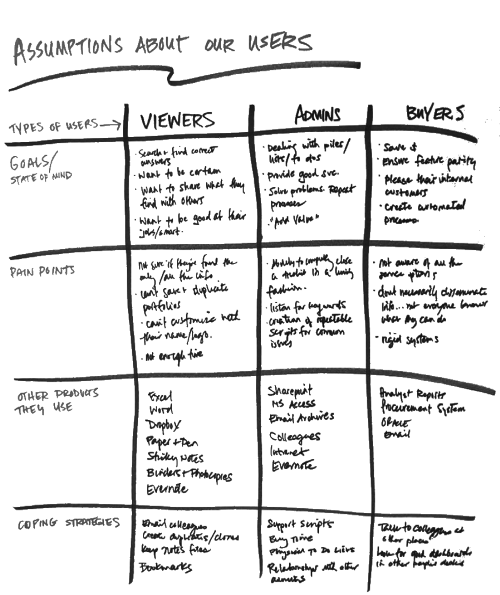 ASSUMPTIONS ABOUT OUR USERS
TYPES OF USERS →
VIEWERS
ADMINS
BUYERS
GOALS/
STATE OF MIND
· Search + find correct
answers
· Want to be certain
· Want to share what they
find with others
· Want to be good at their
jobs/smart.
· Dealing with piles/
lists/to dos
· provide good svc.
· Solve problems. Repeat
processes
· "Add Value"
· Save $
· Ensure feature parity
· Please their internal
customers
· Create automated
processes
PAIN POINTS
not sure if they've found the
only/all the info.
· can't save + duplicate
portfolios
· can't customize need
their name/logo.
· not enough time
· Ability to completely close
a ticket in a timely
fashion..
· listen for keywords
· creation of repeatable
scripts for common
issues
· not aware of all the
service options
· don't necessarily disseminate
info... not everyone knows
what they can do
· rigid systems
OTHER PRODUCTS
THEY USE
Excel
Word
Dropbox
Paper + Pen
Sticky Notes
Binders + Photocopies
Evernote
Sharepoint
MS Access
Email Archives
Colleagues
Intranet
Evernote
Analyst Reports
Procurement System
ORACLE
Email
COPING STRATEGIES
Email colleagues
Create duplicates/clones
Keep Notes files
Bookmarks
Support Scripts
Buy Time
To Do Lists
Relationships with other
Talk to colleagues at
other places
look for good dashboards
in other